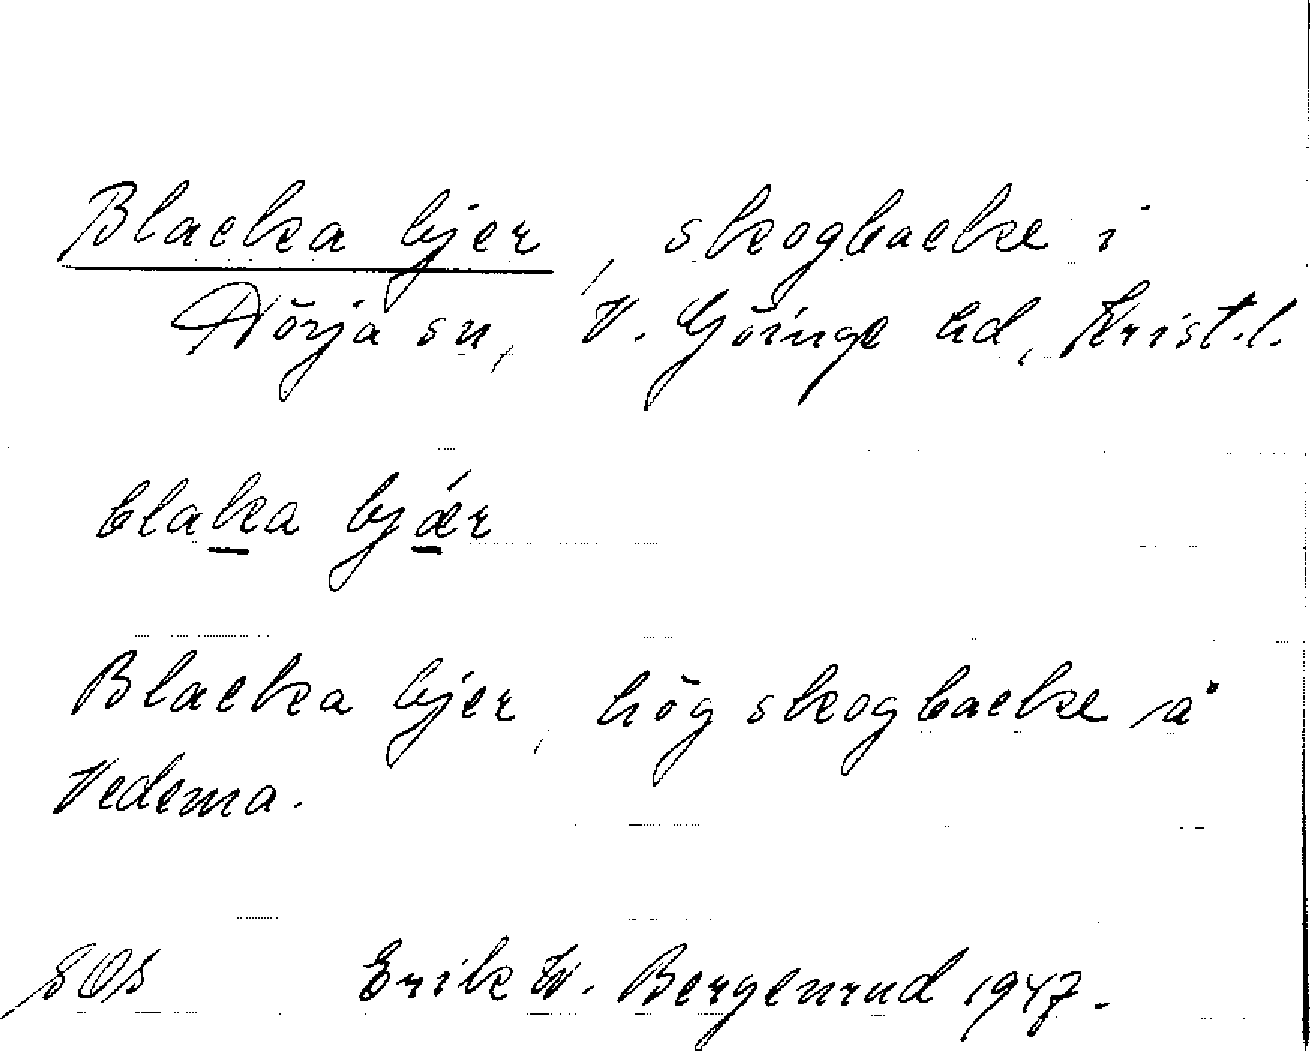 Blacka bjer, skogbacke i
Nörja sn, V. Göinge hd, Krist.l.
blaka bjǽr
Blacka bjer, hög skogbacke å
Vedema.
SOS Erik W. Bergenrud 1947.